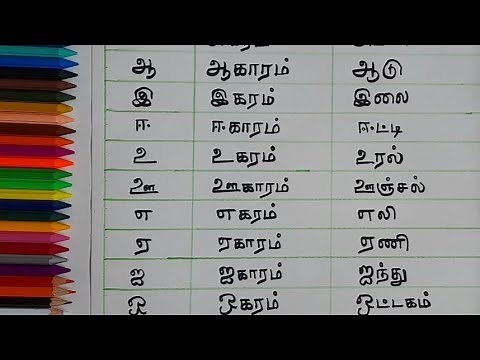 ஆ ஆகாரம் ஆடு
இ இகரம் இலை
ஈ ஈகாரம் ஈட்டி
உ உகரம் உரல்
ஊ ஊகாரம் ஊஞ்சல்
எ எகரம் எலி
ஏ ஏகாரம் ஏணி
ஐ ஐகாரம் ஐந்து
ஒ ஒகரம் ஒட்டகம்